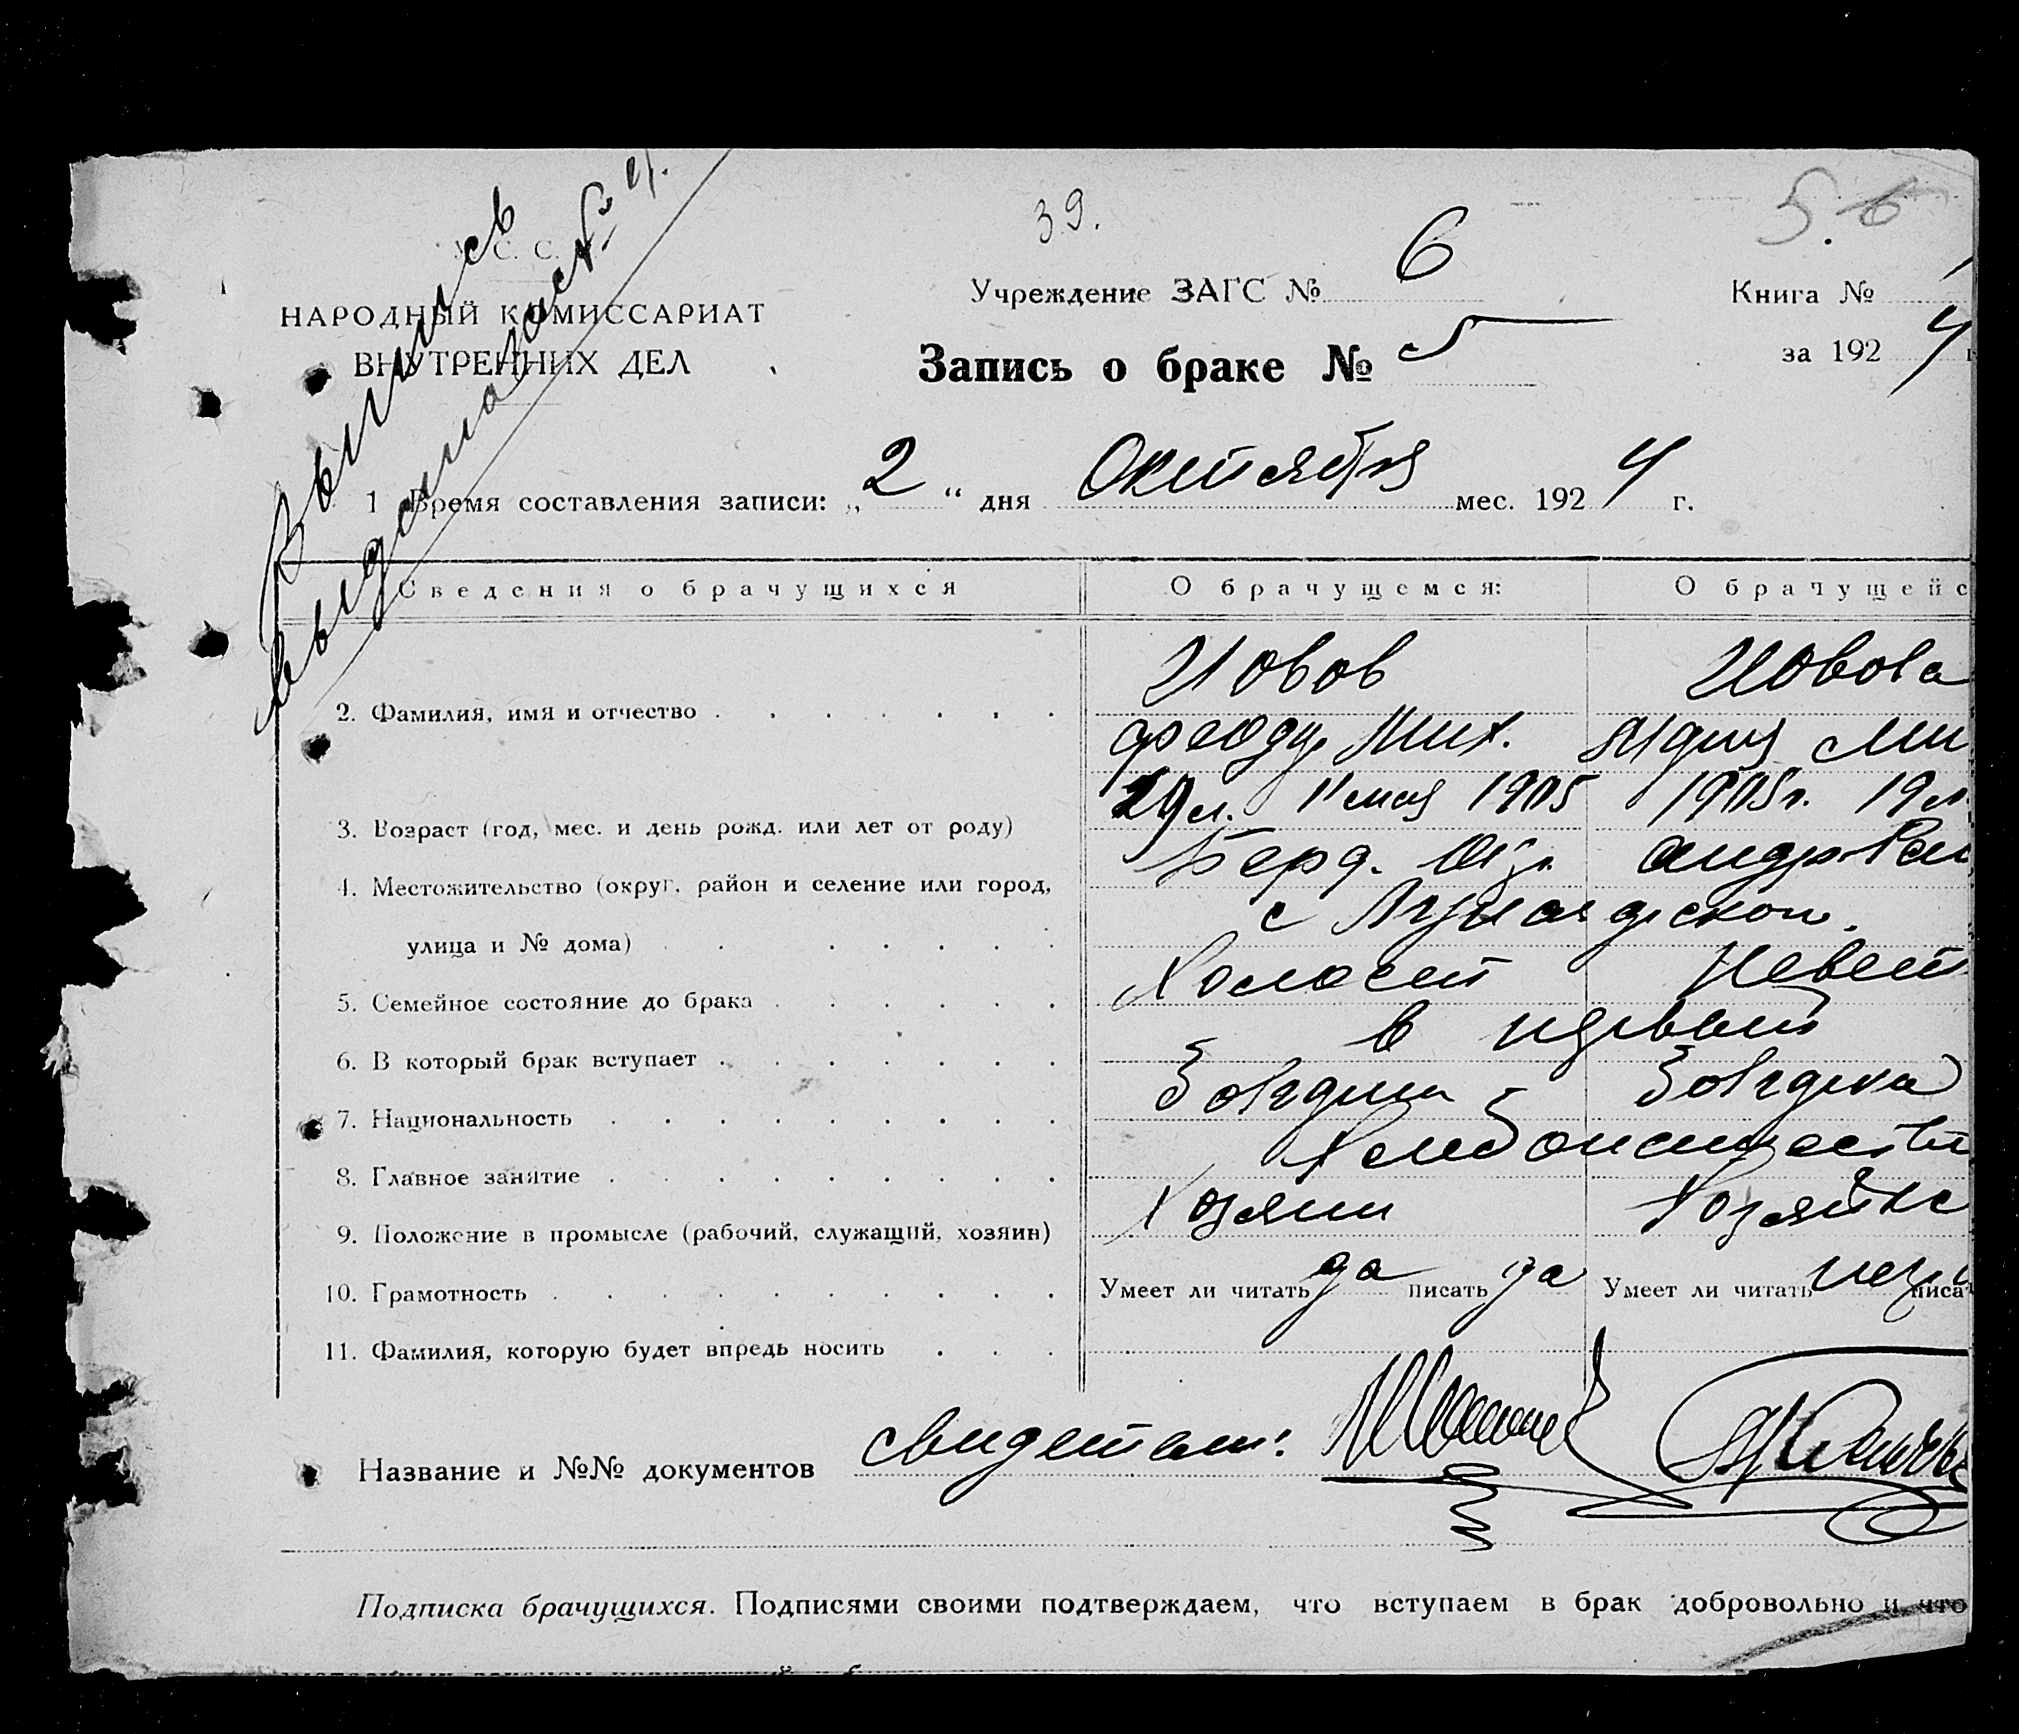 39.
5.6
С. С.
Выпись
выдана
НАРОДНЫЙ КОМИССАРИАТ
ВНУТРЕННИХ ДЕЛ
Учреждение ЗАГС № 6
Книга №
за 192 4
Запись о браке № 5
1 Время составления записи: „ 2 “ дня Октября мес. 192 4 г.
Сведения о брачущихся О брачущемся: О брачущейс
Иовов Иовова
2. Фамилия, имя и отчество
Феодр Мих.
19 л. 1 мая 1905 1905 г. 19 л
3. Возраст (год, мес. и день рожд. или лет от роду)
Берд. Окр.
4. Местожительство (округ, район и селение или город,
с
улица и № дома)
Холост
5. Семейное состояние до брака
в первый
6. В который брак вступает
Болгарин Болгарка
7. Национальность
8. Главное занятие
Хозяин Хозяйка
9. Положение в промысле (рабочий, служащий, хозяин)
10. Грамотность Умеет ли читать да писать да Умеет ли читать писа
11. Фамилия, которую будет впредь носить
Название и №№ документов свидетели:
Подписка брачущихся. Подписями своими подтверждаем, что вступаем в брак добровольно и что